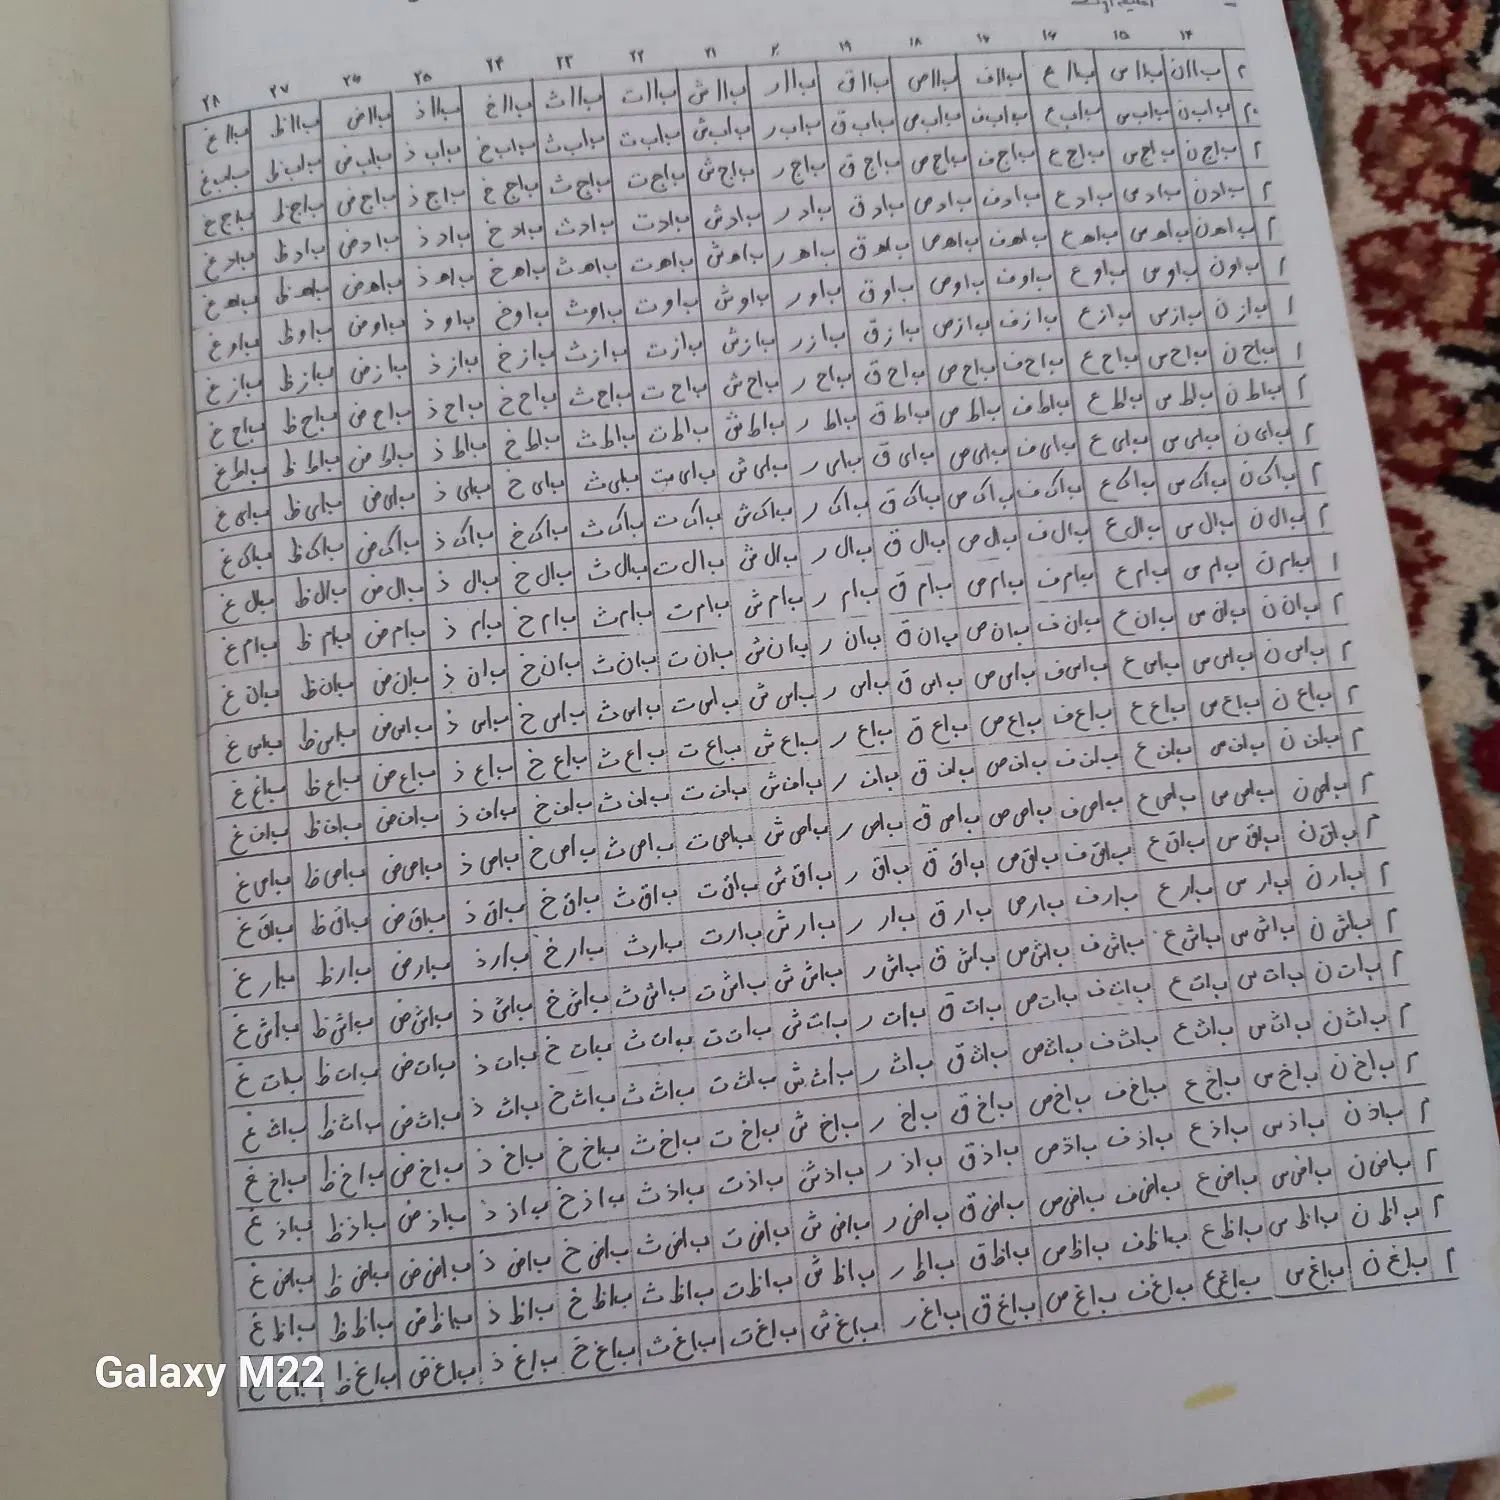 ۱۴ ۱۵ ۱۶ ۱۷ ۱۸ ۱۹ ۲۰ ۲۱ ۲۲ ۲۳ ۲۴ ۲۵ ۲۶ ۲۷ ۲۸
ب ا ا ن ب ا ا س ب ا ا ع ب ا ا ف ب ا ا ص ب ا ا ق ب ا ا ر ب ا ا ش ب ا ا ت ب ا ا ث ب ا ا خ ب ا ا ذ ب ا ا ض ب ا ا ظ ب ا ا غ
ب ا ب ن ب ا ب س ب ا ب ع ب ا ب ف ب ا ب ص ب ا ب ق ب ا ب ر ب ا ب ش ب ا ب ت ب ا ب ث ب ا ب خ ب ا ب ذ ب ا ب ض ب ا ب ظ ب ا ب غ
ب ا ج ن ب ا ج س ب ا ج ع ب ا ج ف ب ا ج ص ب ا ج ق ب ا ج ر ب ا ج ش ب ا ج ت ب ا ج ث ب ا ج خ ب ا ج ذ ب ا ج ض ب ا ج ظ ب ا ج غ
ب ا د ن ب ا د س ب ا د ع ب ا د ف ب ا د ص ب ا د ق ب ا د ر ب ا د ش ب ا د ت ب ا د ث ب ا د خ ب ا د ذ ب ا د ض ب ا د ظ ب ا د غ
ب ا ه ن ب ا ه س ب ا ه ع ب ا ه ف ب ا ه ص ب ا ه ق ب ا ه ر ب ا ه ش ب ا ه ت ب ا ه ث ب ا ه خ ب ا ه ذ ب ا ه ض ب ا ه ظ ب ا ه غ
ب ا و ن ب ا و س ب ا و ع ب ا و ف ب ا و ص ب ا و ق ب ا و ر ب ا و ش ب ا و ت ب ا و ث ب ا و خ ب ا و ذ ب ا و ض ب ا و ظ ب ا و غ
ب ا ز ن ب ا ز س ب ا ز ع ب ا ز ف ب ا ز ص ب ا ز ق ب ا ز ر ب ا ز ش ب ا ز ت ب ا ز ث ب ا ز خ ب ا ز ذ ب ا ز ض ب ا ز ظ ب ا ز غ
ب ا ح ن ب ا ح س ب ا ح ع ب ا ح ف ب ا ح ص ب ا ح ق ب ا ح ر ب ا ح ش ب ا ح ت ب ا ح ث ب ا ح خ ب ا ح ذ ب ا ح ض ب ا ح ظ ب ا ح غ
ب ا ط ن ب ا ط س ب ا ط ع ب ا ط ف ب ا ط ص ب ا ط ق ب ا ط ر ب ا ط ش ب ا ط ت ب ا ط ث ب ا ط خ ب ا ط ذ ب ا ط ض ب ا ط ظ ب ا ط غ
ب ا ی ن ب ا ی س ب ا ی ع ب ا ی ف ب ا ی ص ب ا ی ق ب ا ی ر ب ا ی ش ب ا ی ت ب ا ی ث ب ا ی خ ب ا ی ذ ب ا ی ض ب ا ی ظ ب ا ی غ
ب ا ک ن ب ا ک س ب ا ک ع ب ا ک ف ب ا ک ص ب ا ک ق ب ا ک ر ب ا ک ش ب ا ک ت ب ا ک ث ب ا ک خ ب ا ک ذ ب ا ک ض ب ا ک ظ ب ا ک غ
ب ا ل ن ب ا ل س ب ا ل ع ب ا ل ف ب ا ل ص ب ا ل ق ب ا ل ر ب ا ل ش ب ا ل ت ب ا ل ث ب ا ل خ ب ا ل ذ ب ا ل ض ب ا ل ظ ب ا ل غ
ب ا م ن ب ا م س ب ا م ع ب ا م ف ب ا م ص ب ا م ق ب ا م ر ب ا م ش ب ا م ت ب ا م ث ب ا م خ ب ا م ذ ب ا م ض ب ا م ظ ب ا م غ
ب ا ن ن ب ا ن س ب ا ن ع ب ا ن ف ب ا ن ص ب ا ن ق ب ا ن ر ب ا ن ش ب ا ن ت ب ا ن ث ب ا ن خ ب ا ن ذ ب ا ن ض ب ا ن ظ ب ا ن غ
ب ا س ن ب ا س س ب ا س ع ب ا س ف ب ا س ص ب ا س ق ب ا س ر ب ا س ش ب ا س ت ب ا س ث ب ا س خ ب ا س ذ ب ا س ض ب ا س ظ ب ا س غ
ب ا ع ن ب ا ع س ب ا ع ع ب ا ع ف ب ا ع ص ب ا ع ق ب ا ع ر ب ا ع ش ب ا ع ت ب ا ع ث ب ا ع خ ب ا ع ذ ب ا ع ض ب ا ع ظ ب ا ع غ
ب ا ف ن ب ا ف س ب ا ف ع ب ا ف ف ب ا ف ص ب ا ف ق ب ا ف ر ب ا ف ش ب ا ف ت ب ا ف ث ب ا ف خ ب ا ف ذ ب ا ف ض ب ا ف ظ ب ا ف غ
ب ا ص ن ب ا ص س ب ا ص ع ب ا ص ف ب ا ص ص ب ا ص ق ب ا ص ر ب ا ص ش ب ا ص ت ب ا ص ث ب ا ص خ ب ا ص ذ ب ا ص ض ب ا ص ظ ب ا ص غ
ب ا ق ن ب ا ق س ب ا ق ع ب ا ق ف ب ا ق ص ب ا ق ق ب ا ق ر ب ا ق ش ب ا ق ت ب ا ق ث ب ا ق خ ب ا ق ذ ب ا ق ض ب ا ق ظ ب ا ق غ
ب ا ر ن ب ا ر س ب ا ر ع ب ا ر ف ب ا ر ص ب ا ر ق ب ا ر ر ب ا ر ش ب ا ر ت ب ا ر ث ب ا ر خ ب ا ر ذ ب ا ر ض ب ا ر ظ ب ا ر غ
ب ا ش ن ب ا ش س ب ا ش ع ب ا ش ف ب ا ش ص ب ا ش ق ب ا ش ر ب ا ش ش ب ا ش ت ب ا ش ث ب ا ش خ ب ا ش ذ ب ا ش ض ب ا ش ظ ب ا ش غ
ب ا ت ن ب ا ت س ب ا ت ع ب ا ت ف ب ا ت ص ب ا ت ق ب ا ت ر ب ا ت ش ب ا ت ت ب ا ت ث ب ا ت خ ب ا ت ذ ب ا ت ض ب ا ت ظ ب ا ت غ
ب ا ث ن ب ا ث س ب ا ث ع ب ا ث ف ب ا ث ص ب ا ث ق ب ا ث ر ب ا ث ش ب ا ث ت ب ا ث ث ب ا ث خ ب ا ث ذ ب ا ث ض ب ا ث ظ ب ا ث غ
ب ا خ ن ب ا خ س ب ا خ ع ب ا خ ف ب ا خ ص ب ا خ ق ب ا خ ر ب ا خ ش ب ا خ ت ب ا خ ث ب ا خ خ ب ا خ ذ ب ا خ ض ب ا خ ظ ب ا خ غ
ب ا ذ ن ب ا ذ س ب ا ذ ع ب ا ذ ف ب ا ذ ص ب ا ذ ق ب ا ذ ر ب ا ذ ش ب ا ذ ت ب ا ذ ث ب ا ذ خ ب ا ذ ذ ب ا ذ ض ب ا ذ ظ ب ا ذ غ
ب ا ض ن ب ا ض س ب ا ض ع ب ا ض ف ب ا ض ص ب ا ض ق ب ا ض ر ب ا ض ش ب ا ض ت ب ا ض ث ب ا ض خ ب ا ض ذ ب ا ض ض ب ا ض ظ ب ا ض غ
ب ا ظ ن ب ا ظ س ب ا ظ ع ب ا ظ ف ب ا ظ ص ب ا ظ ق ب ا ظ ر ب ا ظ ش ب ا ظ ت ب ا ظ ث ب ا ظ خ ب ا ظ ذ ب ا ظ ض ب ا ظ ظ ب ا ظ غ
ب ا غ ن ب ا غ س ب ا غ ع ب ا غ ف ب ا غ ص ب ا غ ق ب ا غ ر ب ا غ ش ب ا غ ت ب ا غ ث ب ا غ خ ب ا غ ذ ب ا غ ض ب ا غ ظ
Galaxy M22